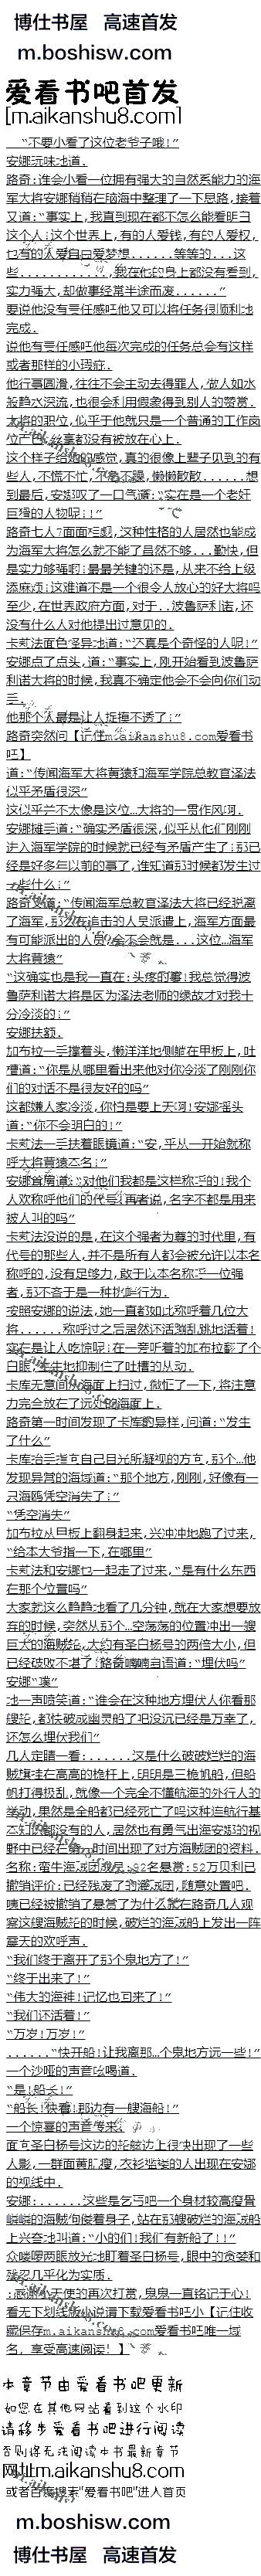 博仕书屋 高速首发
m.boshisw.com
爱看书吧首发
[m.aikanshu8.com]
“不要小看了这位老爷子哦!”
安娜玩味地道.
路奇:谁会小看一位拥有强大的自然系能力的海
军大将安娜稍稍在脑海中整理了一下思路,接着
又道:“事实上,我直到现在都不怎么能看明白
这个人:这个世界上,有的人爱钱,有的人爱权,
也有的人爱自由爱梦想......等等的...这
些............,我在他的身上都没有看到,
实力强大,却做事经常半途而废......”
要说他没有责任感吧他又可以将任务很顺利地
完成.
说他有责任感吧他每次完成的任务总会有这样
或者那样的小瑕疵.
他行事圆滑,往往不会主动去得罪人,做人如水
般静水深流,也很会利用假象得到别人的赞赏.
大将的职位,似乎于他就只是一个普通的工作岗
位产已,丝毫都没有被放在心上.
这个样子给她的感觉,真的很像上辈子见到的有
些人,不慌不忙,不急不躁,懒懒散散......想
到最后,安娜叹了一口气道:“实在是一个老奸
巨猾的人物呢!:”
路奇七人7面面相觑,这种性格的人居然也能成
为海军大将怎么就不能了虽然不够...勤快,但
是实力够强啊:最最关键的还是,从来不给上级
添麻烦:这难道不是一个很令人放心的好大将吗
至少,在世界政府方面,对于..波鲁萨利诺,还
没有什么人对他提出过意见的.
卡莉法面色怪异地道:“还真是个奇怪的人呢!”
安娜点了点头,道:“事实上,刚开始看到波鲁萨
利诺大将的时候,我真不确定他会不会向你们动
手.
他那个人最是让人捉摸不透了:”
路奇突然问【记住m.aikanshu8.com爱看书
吧】
道:“传闻海军大将黄猿和海军学院总教官泽法
似乎矛盾很深”
这似乎并不太像是这位…大将的一贯作风啊.
安娜摊手道:“确实矛盾很深,似乎从他们刚刚
进入海军学院的时候就已经有矛盾产生了:那已
经是好多年以前的事了,谁知道那时候都发生过
一些什么:”
路奇又道:“传闻海军总教官泽法大将已经脱离
了海军,那么在追击的人员派遣上,海军方面最
有可能派出的人员会不会就是...这位…海军
大将黄猿”
“这确实也是我一直在:头疼的事!我总觉得波
鲁萨利诺大将是因为泽法老师的缘故才对我十
分冷淡的:”
安娜扶额.
加布拉一手撑着头,懒洋洋地侧躺在甲板上,吐
槽道:“你是从哪里看出来他对你冷淡了刚刚你
们的对话不是很友好的吗”
这都嫌人家冷淡,你怕是要上天啊!安娜摇头
道:“你不会明白的!”
卡莉法一手扶着眼镜道:“安,乎从一开始就称
呼大将黄猿本名:”
安娜首肯道:“对他们我都是这样称呼的!我个
人欢称呼他们的代号:再者说,名字不都是用来
被人叫的吗”
卡莉法没说的是,在这个强者为尊的时代里,有
代号的那些人,并不是所有人都会被允许以本名
称呼的,没有足够力,敢于以本名称呼一位强
者,那不吝于是一种挑衅行为.
按照安娜的说法,她一直都如此称呼着几位大
将......称呼过之后居然还活蹦乱跳地活着!
实在是让人吃惊呢:在一旁听着的加布拉翻了个
白眼,生生地抑制住了吐槽的冲动.
卡库无意间从海面上扫过,微怔了一下,将注意
力完全放在了远处的海面上.
路奇第一时间发现了卡库的异样,问道:“发生
了什么”
卡库抬手指向自己目光所凝视的方向,那个…他
发现异常的海域道:“那个地方,刚刚,好像有一
只海鸥凭空消失了:”
“凭空消失”
加布拉从甲板上翻身起来,兴冲冲地跑了过来,
“给本大爷指一下,在哪里”
卡莉法和安娜也一起走了过来,“是有什么东西
在那个位置吗”
大家就这么静静地看了几分钟,就在大家想要放
弃的时候,突然从那个…空荡荡的位置冲出一艘
巨大的海贼船,大约有圣白杨号的两倍大小,但
已经破败不堪了:路奇喃喃自语道:“埋伏吗”
安娜“噗”
地一声喷笑道:“谁会在这种地方埋伏人你看那
艘船,都快破成幽灵船了吧没沉已经是万幸了,
还怎么埋伏我们”
几人定睛一看:......这是什么破破烂烂的海
贼旗挂在高高的桅杆上,明明是三桅帆船,但船
帆打得极乱,就像一个完全不懂航海的外行人的
举动,果然是全船都已经死亡了吗这种连航行基
本知识都没有的人,居然也有勇气出海安娜的视
野中已经在第一时间出现了对方海贼团的资料.
名称:蛮牛海贼团成员:82名悬赏:52万贝利已
撤销评价:已经残废了的海贼团,随意处置吧.
咦已经被撤销了悬赏了为什么就在路奇几人观
察这艘海贼船的时候,破烂的海贼船上发出一阵
震天的欢呼声.
“我们终于离开了那个鬼地方了!”
“终于出来了!”
“伟大的海神!记忆也回来了!”
“我们还活着!”
“万岁!万岁!”
......“快开船!让我离那…个鬼地方远一些!”
一个沙哑的声音吆喝道.
“是!船长!”
“船长!快看!那边有一艘海船!”
一个惊喜的声音传来.
面向圣白杨号这边的船舷边上很快出现了一些
人影,一群面黄肌瘦,衣衫褴褛的人出现在安娜
的视线中.
安娜:......这些是乞丐吧一个身材较高瘦骨
嶙峋的海贼佝偻着身子,站在那艘破烂的海贼船
上兴奋地叫道:“小的们!我们有新船了!!”
众喽啰两眼放光地盯着圣白杨号,眼中的贪婪和
残忍几乎化为实质.
:感谢小天使的再次打赏,鬼鬼一直铭记于心!
看无下划线版小说请下载爱看书吧小【记住收
藏保存m.aikanshu8.com爱看书吧唯一域
名，享受高速阅读！】
本章节由爱看书吧更新
如您在其他网站看到这个水印
请移步爱看书吧进行阅读
否则将无法阅读本书最新章节
网址m.aikanshu8.com
或者百度搜索"爱看书吧"进入首页
m.boshisw.com
博仕书屋 高速首发